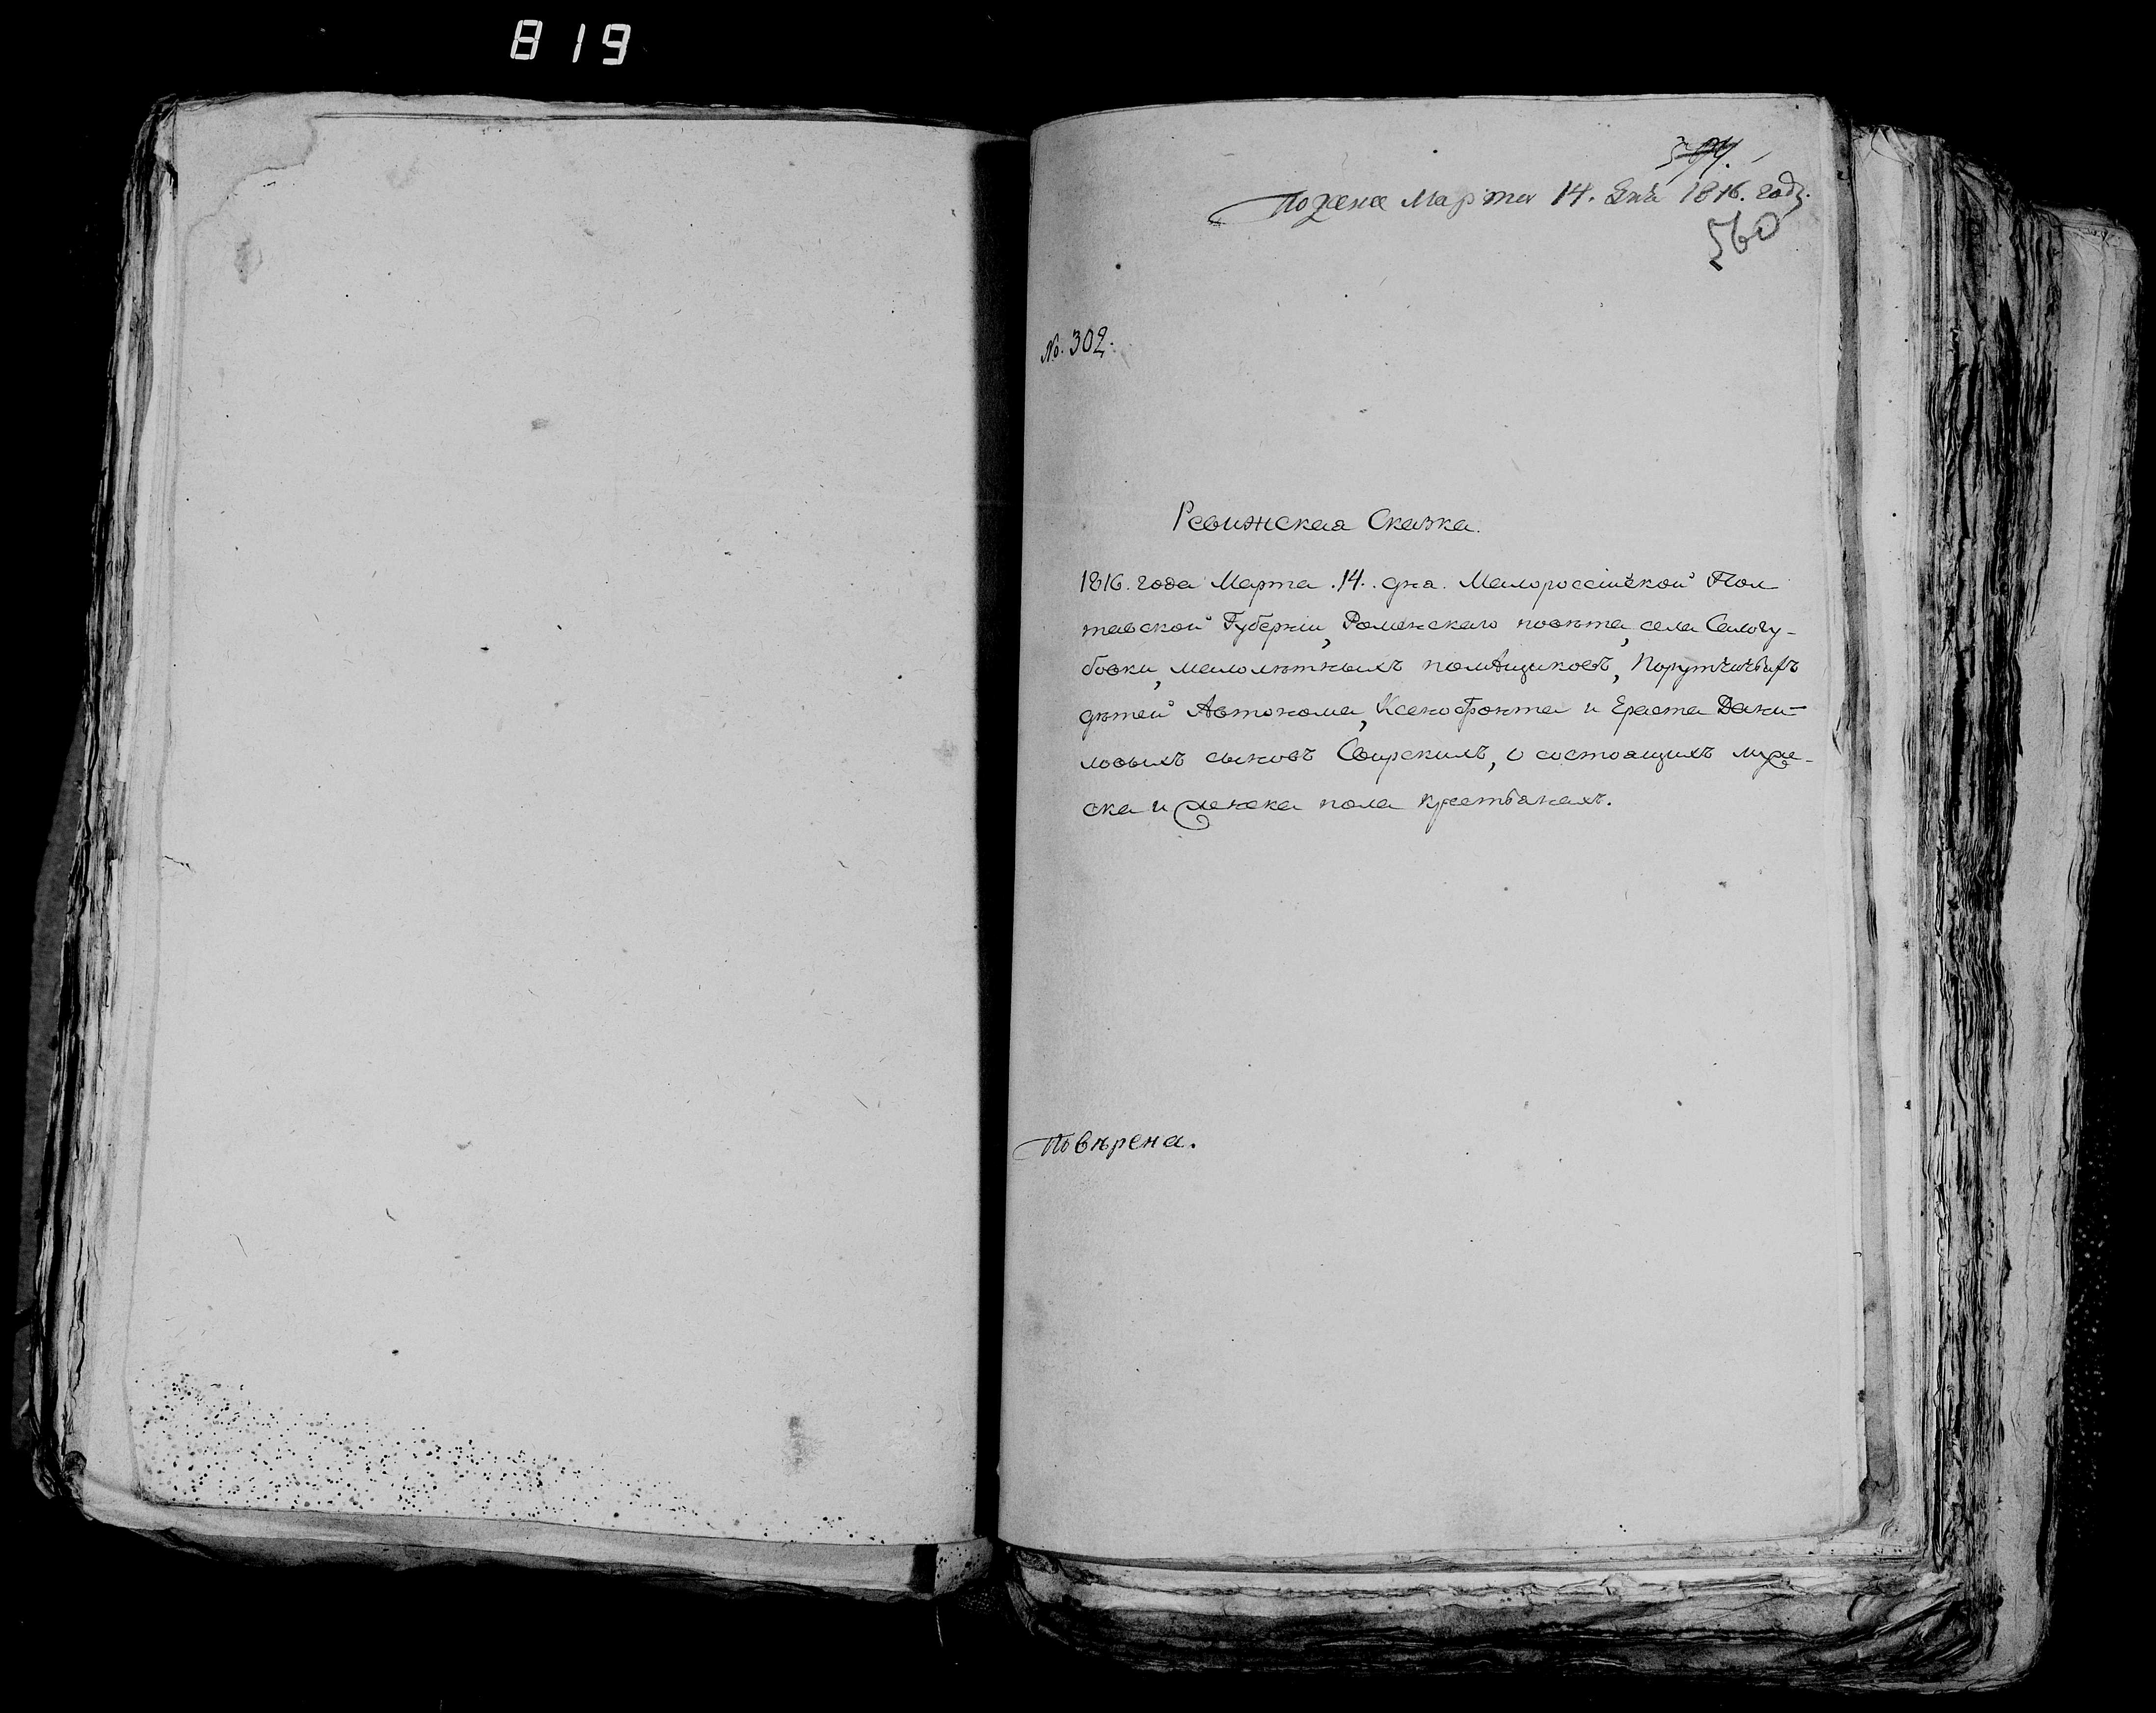 819
Подана Марта 14. дня 1816. году.
560
№. 302.
Ревижская Сказка.
1816. года Марта .14. дня. Малороссійской Пол
тавской Губерніи, Роменскаго повѣта, села Салогу-
бовки, малолѣтныхъ помѣщиковъ, Порутчичьихъ
дѣтей Автонома, Ксенофонта и Ераста Дани-
ловыхъ сыновъ Свирскихъ, о состоящихъ муже-
ска и женска пола крестьянахъ.
Повѣрена.